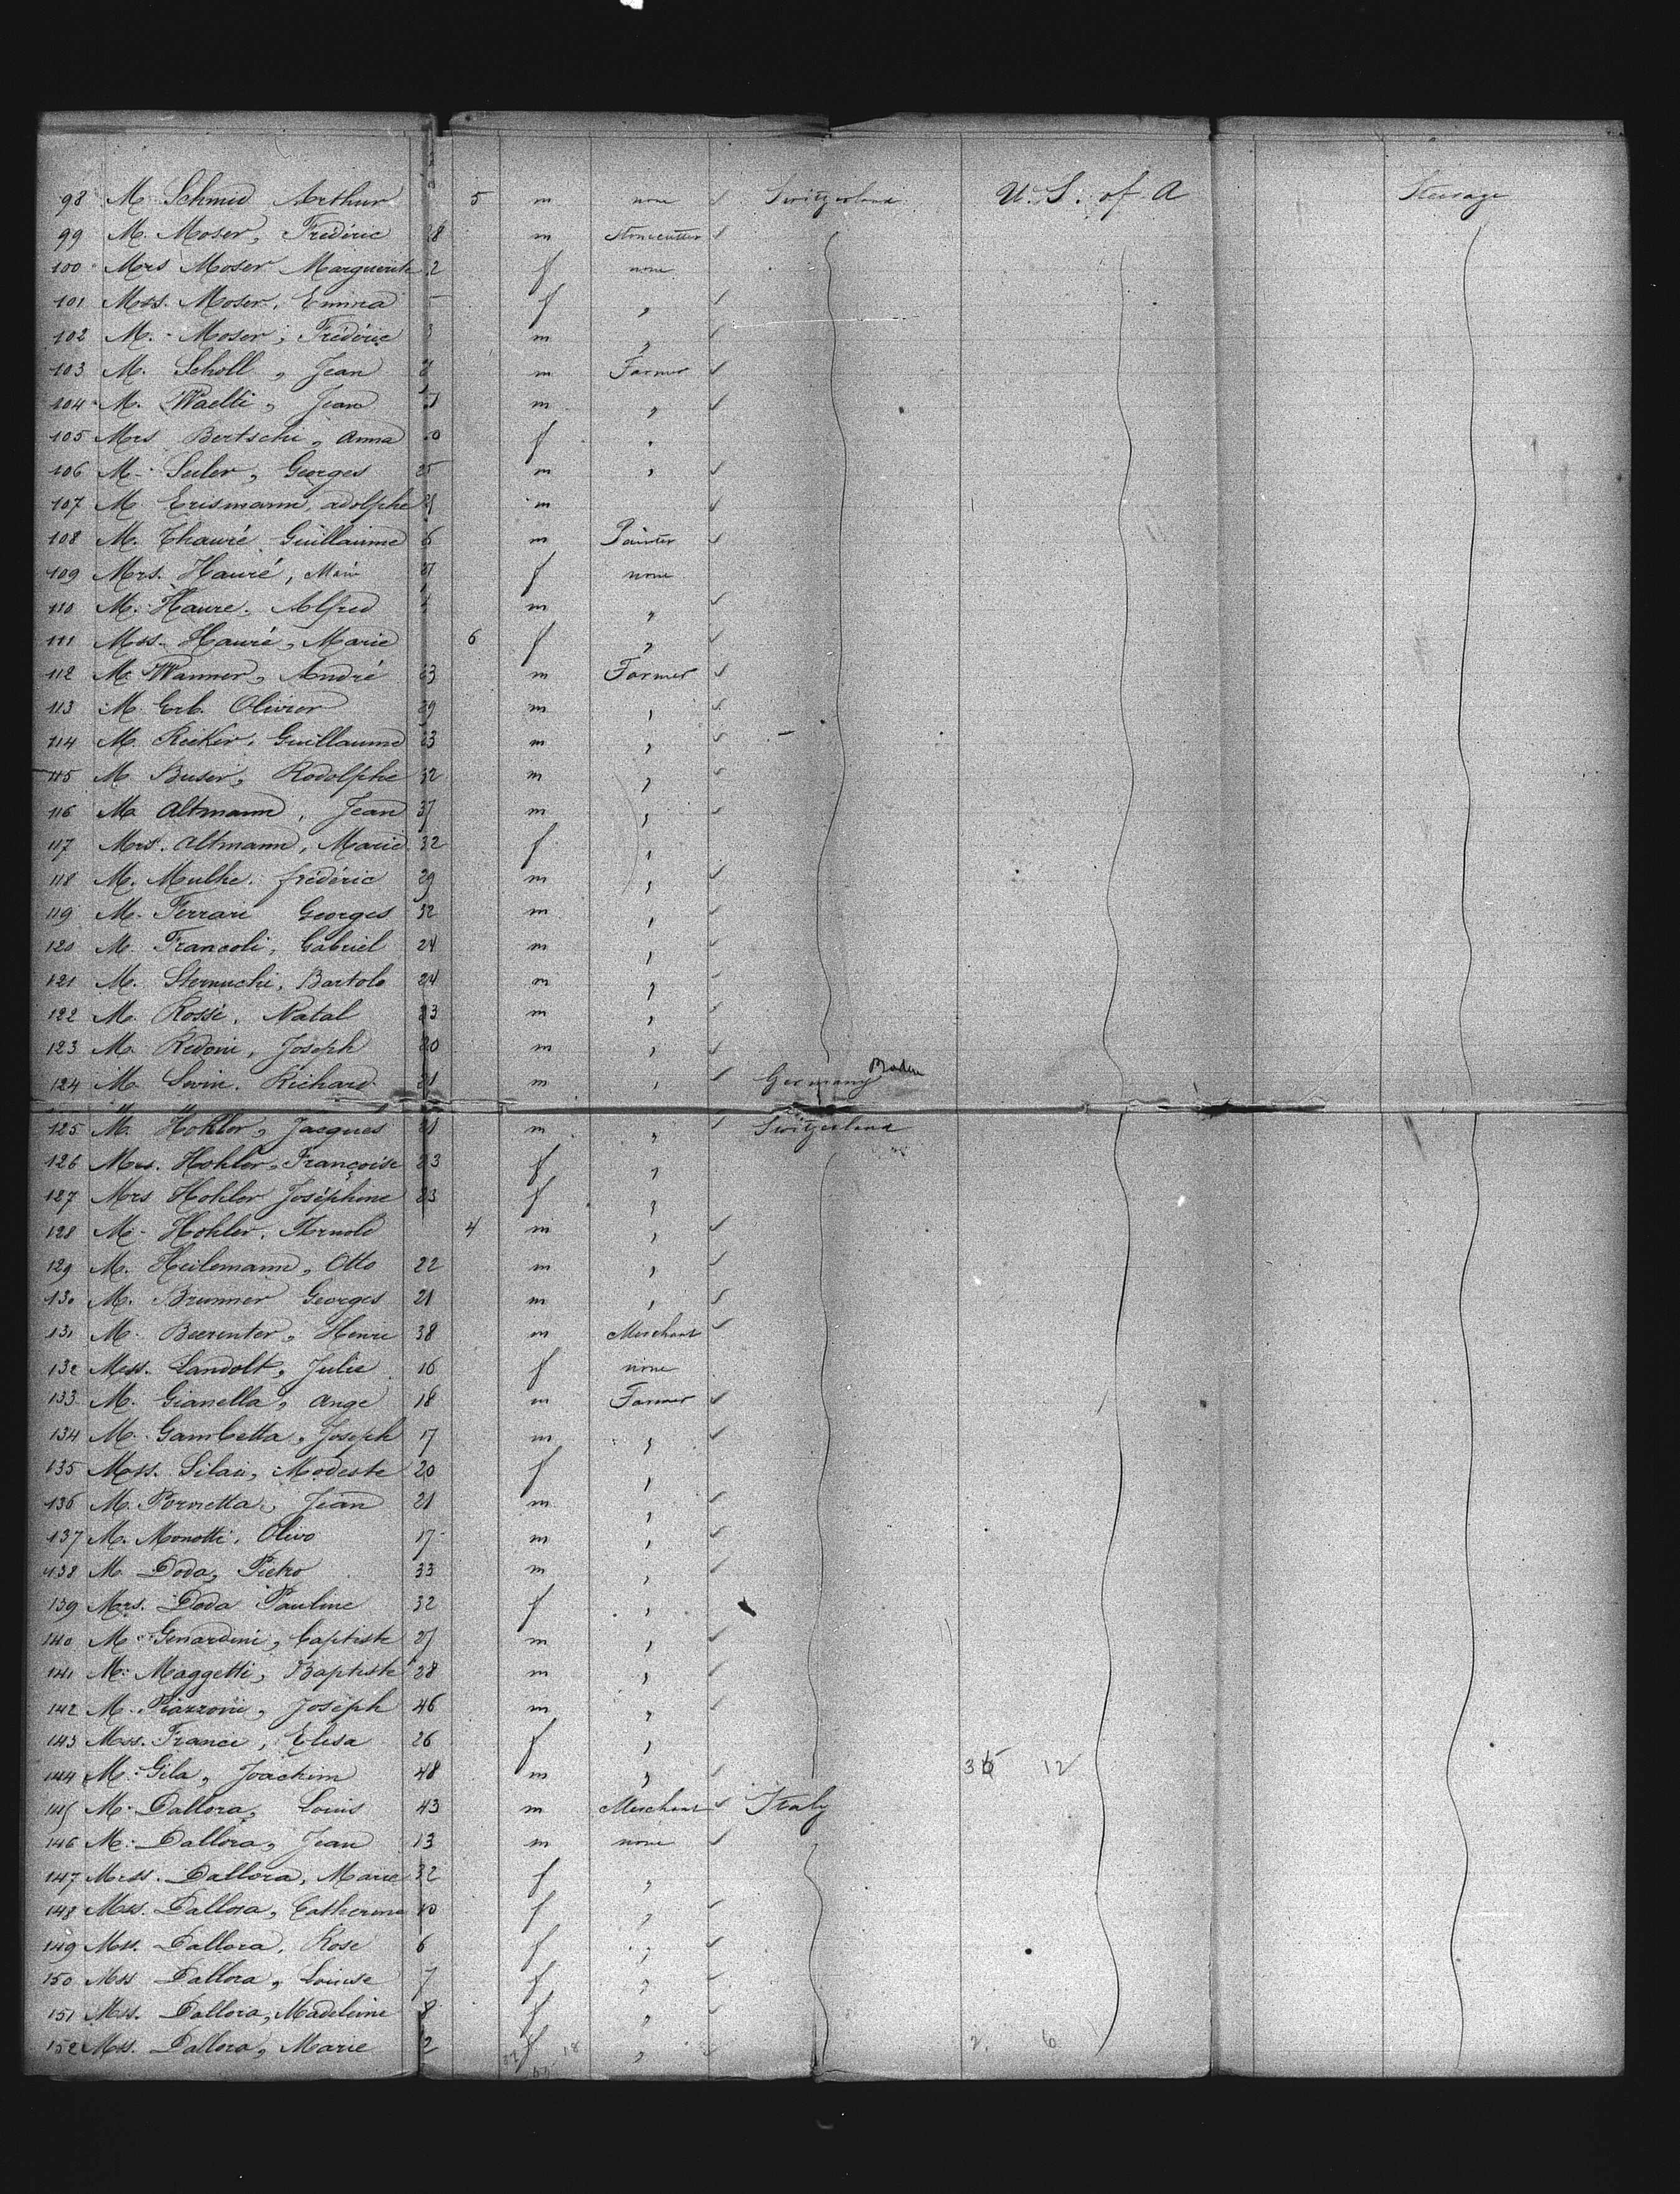 98 M. Schmid Arthur 5 m none Switzerland U. S. of A Steerage
99 M. Moser, Frédéric 28 m Stonecutter
100 Mrs Moser Marguerite 2 f none
101 Mss. Moser, Emma f "
102 M. Moser, Frédéric 3 m "
103 M. Scholl, Jean m Farmer
104 M. Waelti, Jean m "
105 Mrs Bertschi, Anna 0 f "
106 M. Suler, Georges 25 m "
107 M. Erismann, adolphe m
108 M. Thauré Guillaume 6 m Painter
109 Mrs. Hauré, Marie f none
110 M. Haure. Alfred m "
111 Mss. Hauré, Marie 6 f "
112 M. Wanner, André 23 m Farmer
113 M. Erb. Olivier 29 m "
114 M. Recker, Guillaume 23 m "
115 M. Buser, Rodolphe 32 m "
116 M. Altmann, Jean 37 m "
117 Mrs. Altmann, Marie 32 f "
118 M. Mulhe. frédéric 29 m "
119 M. Ferrari Georges 32 m "
120 M. Francoli, Gabriel 24 m "
121 M. Sternuchi, Bartolo 24 m "
122 M. Rossi. Natal 23 m "
123 M. Redoni, Joseph 20 m "
124 M. Levin. Richard 21 m " Germany Baden
125 M. Hohler, Jacques 21 m " Switzerland
126 Mrs. Hohler, Françoise 23 f "
127 Mrs Hohler Joséphine 23 f "
128 M. Hohler, Arnold 4 m "
129 M. Heilemann, Otto 22 m "
130 M. Brunner Georges 21 m "
131 M. Beerenter, Henri 38 m Merchant
132 Mss. Landolt, Julie 16 f none
133 M. Gianella, Ange 18 m Farmer
134 M. Gambetta, Joseph 17 m "
135 Mss. Silaii, Modeste 20 f "
136 M. Pornetta, Jean 21 m "
137 M. Monotti, Olivo 17 m "
138 M. Doda, Pietro 33 m "
139 Mrs. Doda Pauline 32 f "
140 M. Genardini, Baptiste 27 m "
141 M. Maggetti, Baptiste 28 m "
142 M. Piazzoni, Joseph 46 m "
143 Mss. Franci, Elisa 26 f "
144 M. Gila, Joachim 48 m " 36 12
145 M. Dallora, Louis 43 m Merchant Italy
146 M. Dallora, Jean 13 m none
147 Mss. Dallora, Marie 32 f "
148 Mss. Dallora, Catherine 10 f "
149 Mss. Dallora, Rose 6 f "
150 Mss Dallora, Louise 7 f "
151 Mss. Dallora, Madeleine 8 f "
152 Mss. Dallora, Marie 2 f " 2. 6
18